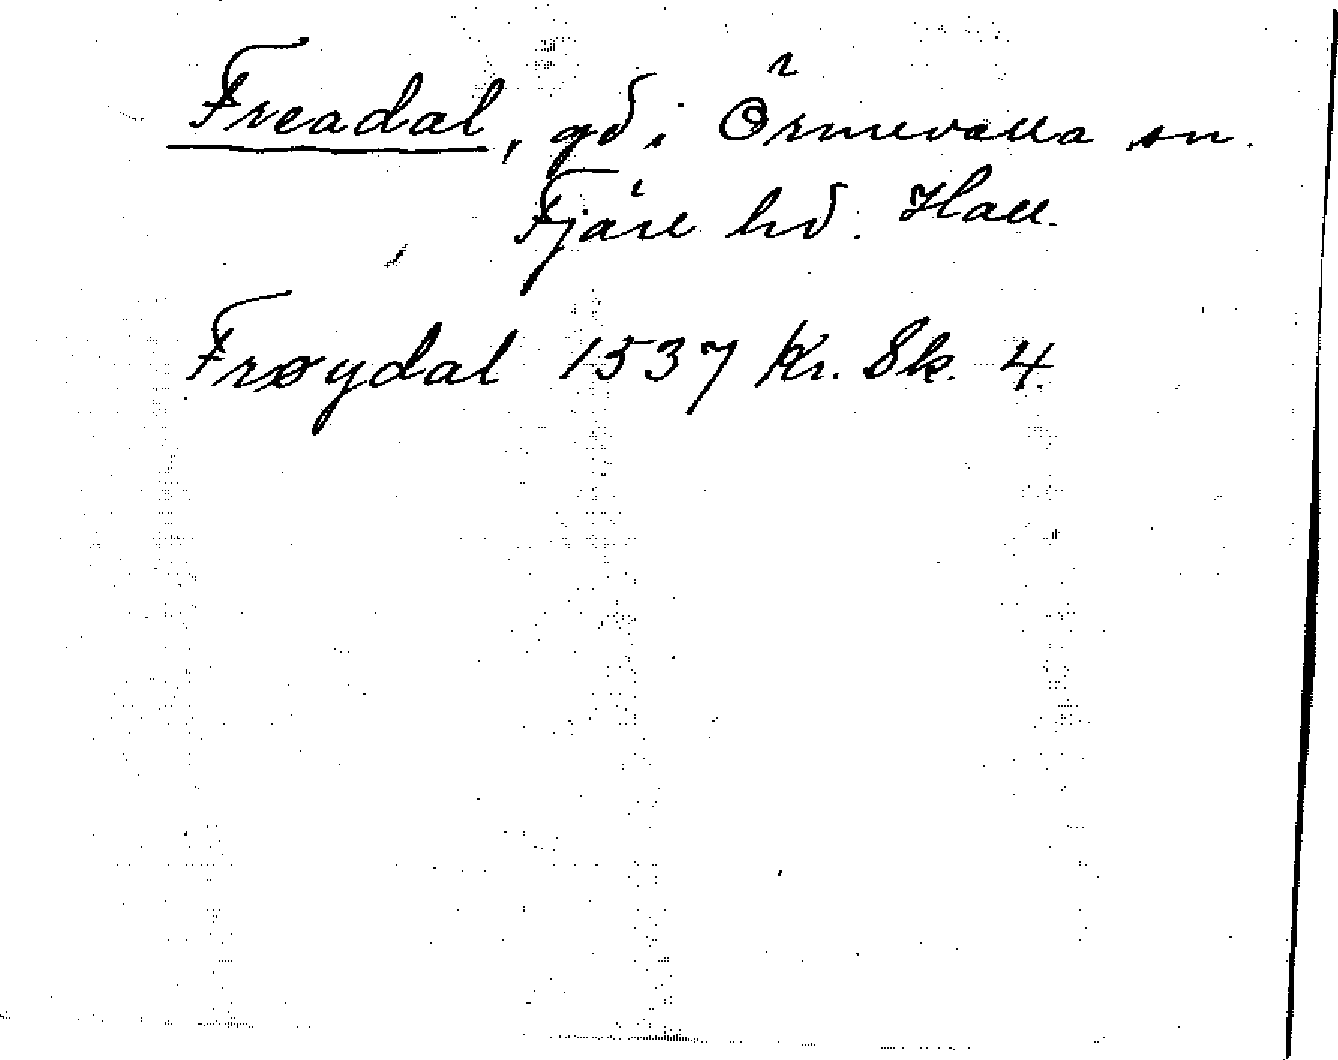 Freadal, gd i Örmevalla sn.
Fjäre hd. Hall.
Frøydal 1537 Kr. Sk. 4.